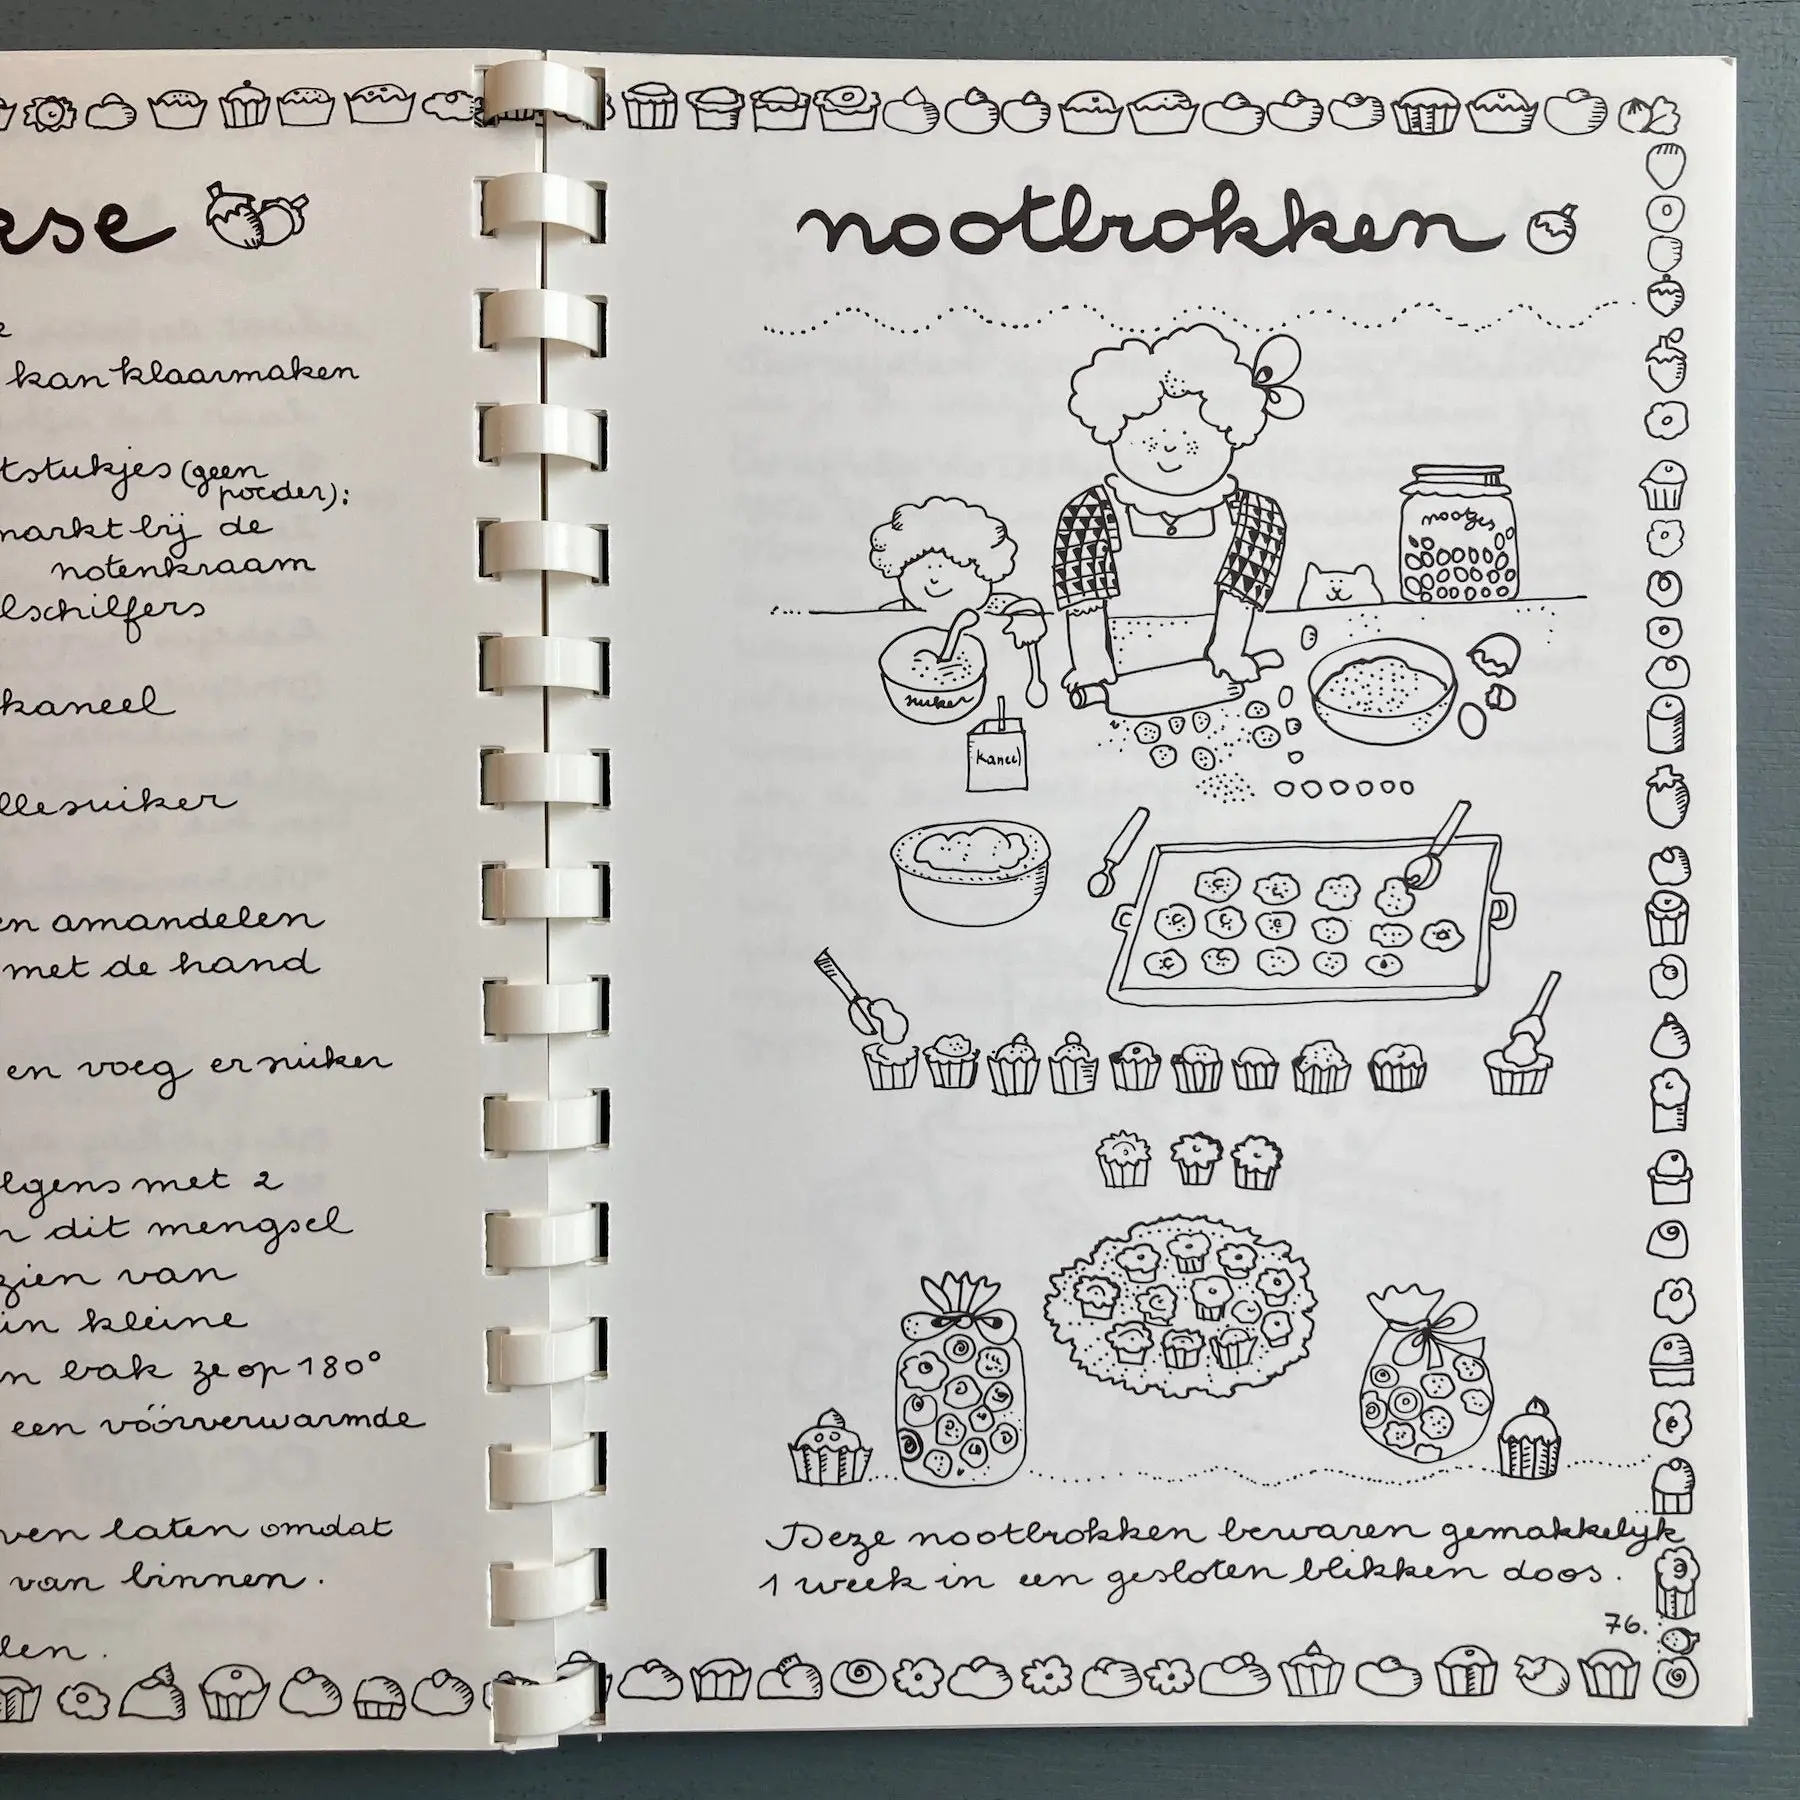 kse
e
kan klaarmaken
tstukjes (geen
poeder);
markt bij de
notenkraam
lschilfers
kaneel
llesuiker
en amandelen
met de hand
en voeg er suiker
lgens met 2
n dit mengsel
zien van
in kleine
n bak ze op 180°
een vóórverwarmde
ven laten omdat
van binnen.
len.
nootbrokken
nootjes
suiker
kaneel
Deze nootbrokken bewaren gemakkelijk
1 week in een gesloten blikken doos.
76.